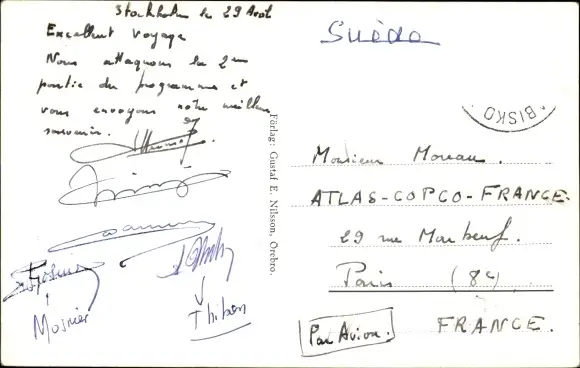 Stockholm le 29 Août
Excellent voyage
Nous attaquons la 2ème
partie du programme et
vous envoyons notre meilleur
souvenir.
Mosnier
Thibon
Förlag: Gustaf E. Nilsson, Örebro.
Suède
BISKO
Monsieur Moreau.
ATLAS-COPCO-FRANCE.
29 rue Marbeuf.
Paris (8e)
Par Avion.
FRANCE.